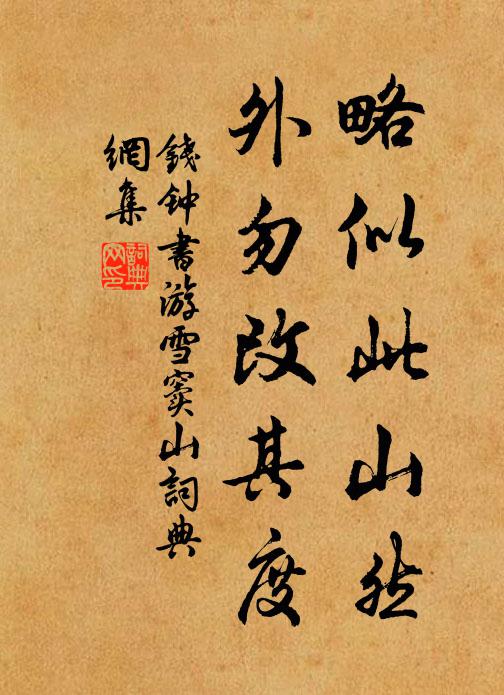 略似此山然
外勿改其度
錢钟書游雪窦山詞典
網集
詞典
网印